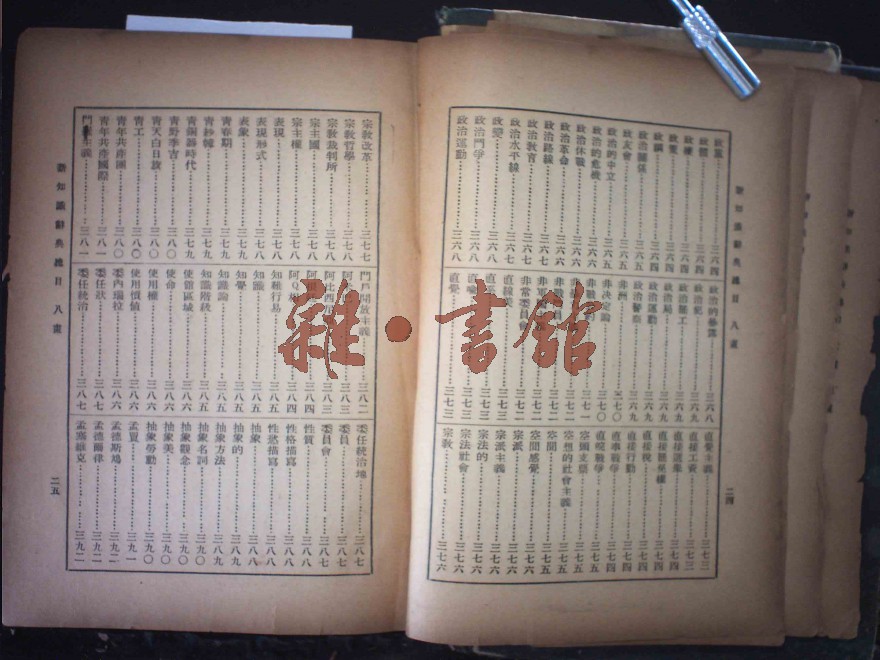 新知識辭典總目 八畫
二四
政黨……三六四
政體……三六四
政權……三六四
政策……三六四
政綱……三六四
政友會……三六五
政治關係……三六五
政治的中立……三六五
政治的危機……三六六
政治休戰……三六六
政治革命……三六六
政治路線……三六六
政治教育……三六七
政治水平線……三六七
政變……三六八
政治鬥爭……三六八
政治運動……三六八
政治的暴露……三六八
政治犯……三六九
政治罷工……三六九
政治局……三六九
政治運動……三六九
政治警察……三六九
非洲……三七〇
非決定論……三七〇
非常委員會
直線美
直喻……三七三
直覺……三七三
直覺主義……三七三
直接工資……三七三
直接選舉……三七四
直接稅……三七四
直接行動……三七四
空頭支票……三七五
空想的社會主義……三七五
空間……三七五
空間感覺……三七六
宗派……三七六
宗派主義……三七六
宗法的……三七六
宗法社會……三七六
宗教……三七六
宗教改革……三七七
宗教哲學……三七八
宗教裁判所……三七八
宗主國……三七八
宗主權……三七八
表現……三七八
表現形式……三七八
表象……三七九
青春期……三七九
青紗帳……三七九
青銅器時代……三七九
青野季吉……三八〇
青天白日旗……三八〇
青工……三八〇
青年共產團……三八〇
青年共產國際……三八一
門羅主義……三八一
門戶開放主義……三八二
阿比西尼
阿Q
知難行易……三八五
知識……三八五
知覺……三八五
知識論……三八五
知識階級……三八五
使館區域……三八六
使命……三八六
使用權……三八六
使用價值……三八六
委內瑞拉……三八六
委任狀……三八七
委任統治……三八七
委任統治地……三八七
委員……三八七
委員會……三八七
性質……三八八
性格描寫……三八八
性慾描寫……三八八
抽象……三八八
抽象的……三八九
抽象方法……三八九
抽象名詞……三九〇
抽象觀念……三九〇
抽象美……三九〇
抽象勞動……三九〇
孟買……三九一
孟德斯鳩……三九二
孟德爾律……三九二
孟塞維克……三九二
新知識辭典總目 八畫
二五
雜·書館